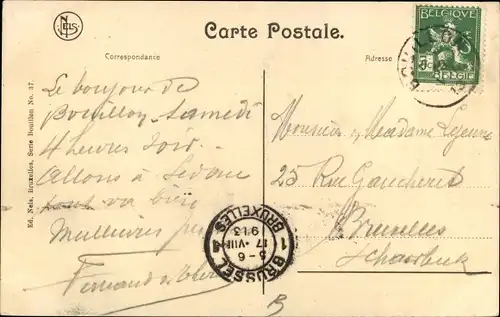 NELS
Carte Postale.
Correspondance
Adresse
BELGIQUE
5c
BELGIE
Ed. Nels, Bruxelles, Serie Bouillon No. 37.
Le bonjour de
Bouillon Samedi
4 heures soir.
Allons à Sedan
tout va bien
Meilleures
Fernand
Monsieur, Madame Lejeune
25 Rue Gaucheret
Bruxelles
Schaerbeek
BRUSSEL 1 BRUXELLES 1
5-6
17 VIII
913